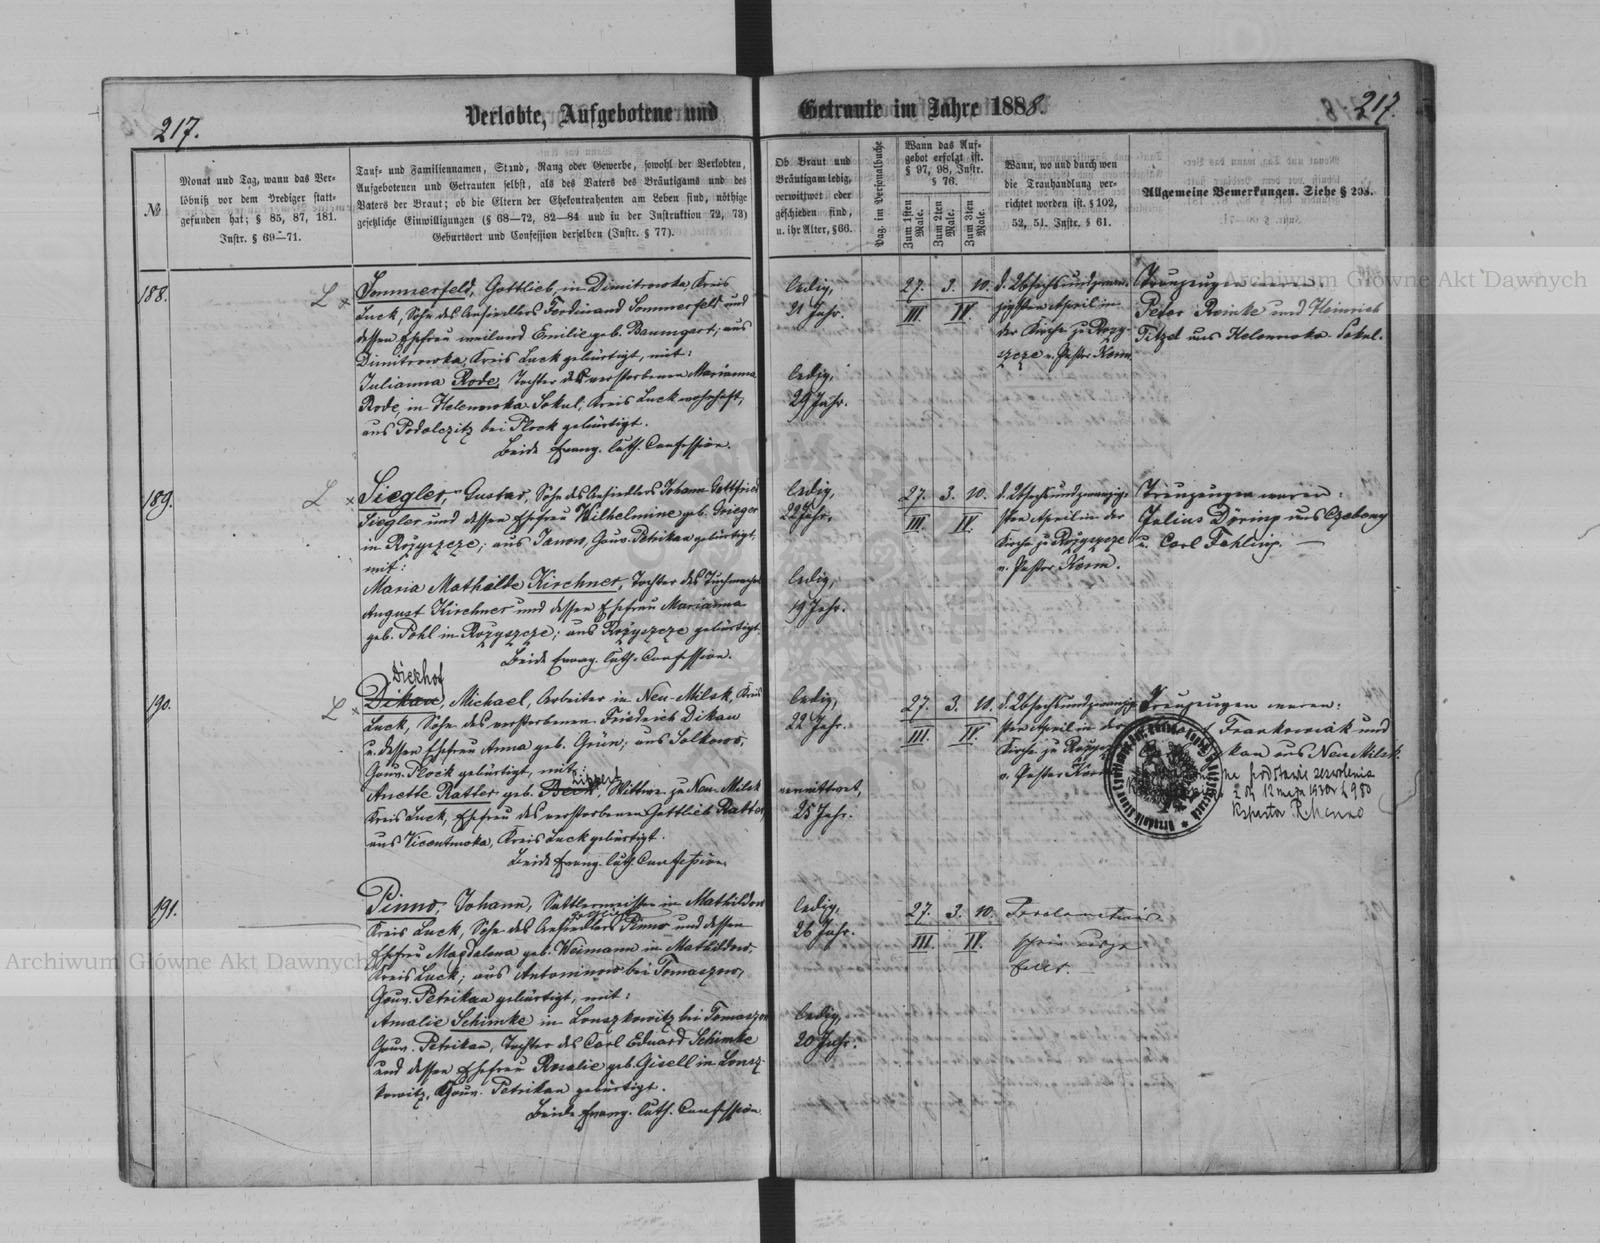 217.
Verlobte, Aufgebotene und Getraute im Jahre 1888.
217.
№
Monat und Tag, wann das Ver-
löbniß vor dem Prediger statt-
gefunden hat; § 85, 87, 181.
Instr. § 69—71.
Tauf- und Familiennamen, Stand, Rang oder Gewerbe, sowohl der Verlobten,
Aufgebotenen und Getrauten selbst, als des Vaters des Bräutigams und des
Vaters der Braut; ob die Eltern der Ehekontrahenten am Leben sind, nöthige
gesetzliche Einwilligungen (§ 68—72, 82—84 und in der Instruktion 72, 73)
Geburtsort und Confession derselben (Instr. § 77).
Ob Braut und
Bräutigam ledig,
verwittwet oder
geschieden sind,
u. ihr Alter, § 66.
Pag. im Personalbuche
Wann das Auf-
gebot erfolgt ist.
§ 97, 98, Instr.
§ 76.
Zum 1sten Male.
Zum 2ten Male.
Zum 3ten Male.
Wann, wo und durch wen
die Trauhandlung ver-
richtet worden ist. § 102,
52, 51. Instr. § 61.
Allgemeine Bemerkungen. Siehe § 298.
188.
Sommerfeld, Gottlieb, in Dimitrowka Kreis
Luck, Sohn des Ansiedlers Ferdinand Sommerfeld und
dessen Ehefrau weiland Emilie geb. Baumgart; aus
Dimitrowka, Kreis Luck gebürtigt, mit:
Julianna Rode, Tochter der verstorbenen Marianna
Rode, in Helenowka Sokul, Kreis Luck wohnhaft,
aus Podolczitz bei Plock gebürtigt.
Beide Evang. luth. Confession.
ledig,
21 Jahr.
ledig,
24 Jahr.
27. 3. 10.
III IV.
d. Achtundzwan-
zigsten April in
der Kirche zu Rozy-
szcze v. Pastor Kerm.
Trauzeugen waren:
Peter Reinke und Heinrich
Titzel aus Helenowka Sokul.
189.
Siegler, Gustav, Sohn des Ansiedlers Johann Gottfried
Siegler und dessen Ehefrau Wilhelmine geb. Krieger
in Rożyszcze; aus Janow, Gouv. Petrikau gebürtigt,
mit:
Maria Mathilde Kirchner, Tochter des Tuchmachers
August Kirchner und dessen Ehefrau Marianna
geb. Pohl in Rożyszcze; aus Rożyszcze gebürtigt.
Beide Evang. luth. Confession.
ledig,
22 Jahr.
ledig,
19 Jahr.
27. 3. 10.
III IV.
d. Achtundzwanzig-
sten April in der
Kirche zu Rożyszcze
v. Pastor Kerm.
Trauzeugen waren:
Julius Döring aus Czebeny
u. Carl Fehling.
190.
Diekhof
Dikau, Michael, Arbeiter in Neu-Milsk, Kreis
Luck, Sohn des verstorbenen Friedrich Dikau
u. dessen Ehefrau Anna geb. Grün; aus Solkowo,
Gouv. Plock gebürtigt, mit:
Lippert
Anette Ratter geb. Beck, Wittwe zu Neu-Milsk
Kreis Luck, Ehefrau des verstorbenen Gottlieb Ratter,
aus Vicentowka, Kreis Luck gebürtigt.
Beide Evang. luth. Confession.
ledig,
22 Jahr.
verwittwet,
25 Jahr.
27. 3. 10.
III. IV.
d. Achtundzwanzig-
sten April in der
Kirche zu
v. Pastor
Trauzeugen waren:
Frankowiak und
aus Neu Milsk.
na podstawie zezwolenia
z dn 12 maja 1930 r L 980
191.
Pinno, Johann, Sattlermeister in Mathildow
Kreis Luck, Sohn des Ansiedlers Pinno und dessen
Ehefrau Magdalena geb. Weimann in Mathildow,
Kreis Luck; aus Antoninow bei Tomaszow,
Gouv. Petrikau gebürtigt, mit:
Amalie Schimke in Lonszkowitz bei Tomaszow
Gouv. Petrikau, Tochter des Carl Eduard Schimke
und dessen Ehefrau Rosalie geb. Gisell in Lonsz-
kowitz, Gouv. Petrikau gebürtigt.
Beide Evang. luth. Confession
ledig,
26 Jahr.
ledig,
20 Jahr.
27. 3. 10.
III. IV.
Proclamations
schein
Archiwum Główne Akt Dawnych
Archiwum Główne Akt Dawnych